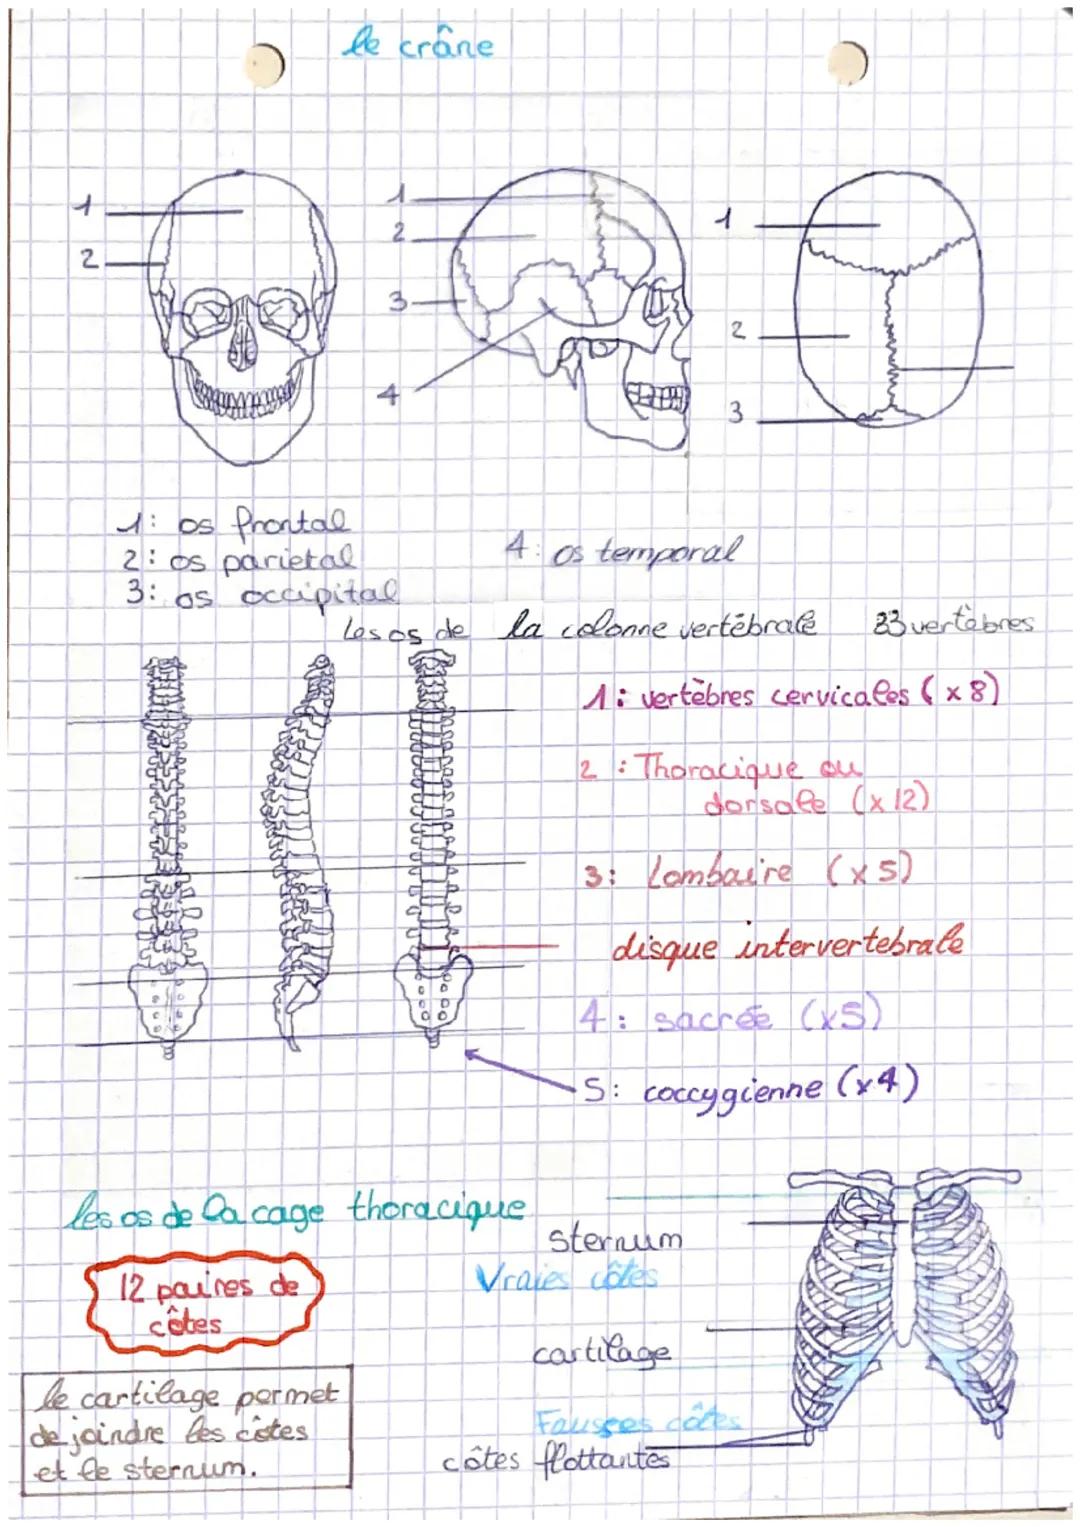 le crâne
1
2
1
2
3
4
1
2
3
1: os frontal
2: os parietal
3: os occipital
4: os temporal
Les os de la colonne vertébrale 33 vertèbres
1: vertèbres cervicales (x8)
2: Thoracique ou
dorsale (x12)
3: Lombaire (x5)
disque intervertebrale
4: sacrée (x5)
5: coccygienne (x4)
les os de la cage thoracique
12 paires de
côtes
le cartilage permet
de joindre les côtes
et le sternum.
sternum
Vraies côtes
cartilage
Fausses côtes
côtes flottantes